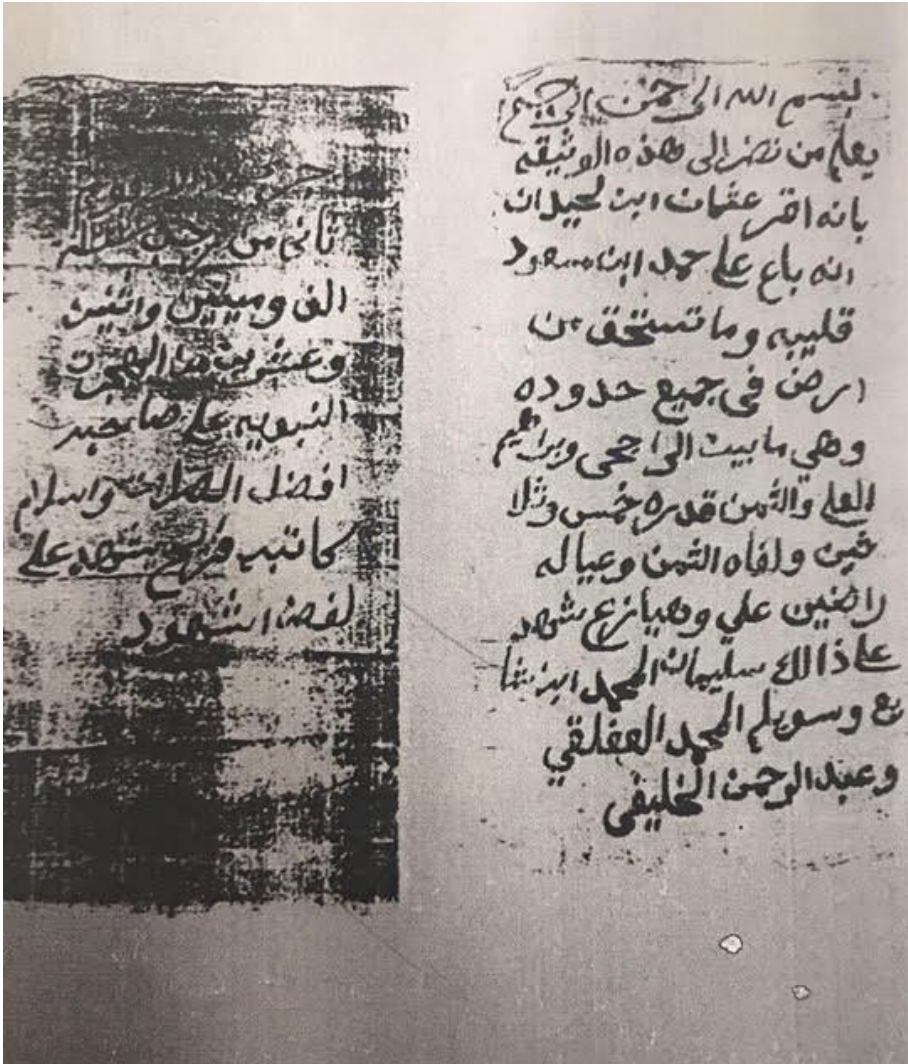 بسم الله الرحمن الرحيم
يعلم من نضر الى هذه الوثيقه
بانه اقر عثمان ابن لحيدان
انه باع علي حمد ابن سعود
قليبه وما تستحق من
ارض في جميع حدوده
وهي ما بين الراجحي وبراهيم
العلي والثمن قدره خمس وثلا
ثين ولفاه الثمن وعياله
راضين علي وهيا نزع شهد
علي ذالك سليمان المحمد ابن شا
يع وسويلم المحمد العفلقي
وعبد الرحمن الخليفي
ثاني من رجب سنة
الف وميتين واثنين
وعشرين من الهجرت
النبويه علي صاحبه
افضل الصلات واسلام
كاتبه يشهد علي
لفض اشهود